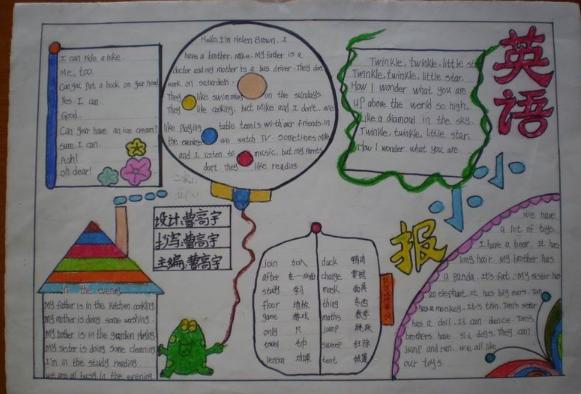 I can ride a bike.
Me, too.
Can you put a book on your head
Yes I can
Good.
Can you have an ice cream?
Sure I can
Aah!
Oh dear!
Hello, I'm Helen Brown. I
have a brother, Mike. My father is a
doctor and my mother is a bus driver. They don't
work on saturdays on the sundays.
They like swimming
They like cooking, but Mike and I don't. We
like playing table tenis with our friends in
we watch TV. Sometimes Mike
and I listen to music, but my parents
don't. They like reading
Twinkle, twinkle, little star
Twinkle, twinkle, little star.
How I wonder what you are
up above the world so high.
Like a diamond in the sky.
Twinkle, twinkle, little star.
How I wonder what you are
英语
小小
报
设计:曹高宇
抄写:曹高宇
主编:曹高宇
In the evening
My father is in the kitchen cooking.
My mother is doing some washing.
My brother is in the garden
My sister is doing some cleaning
I'm in the study reading.
we are all busy in the evening
join duck
after change
study mask
floor 地板 thing 东西
game 游戏 maths 数学
only jump 跳跃
travel sweep 扫除
lesson 功课 tent
We have
a lot of toys.
I have a bear. It has
long hair. My brother has
a panda. It's fat. My sister has
an elephant. It has big ears. Tom
has a monkey. It's thin. Tom's sister
has a doll. It can dance. Tom's
brothers have They can
jump and run. We all like
our toys.